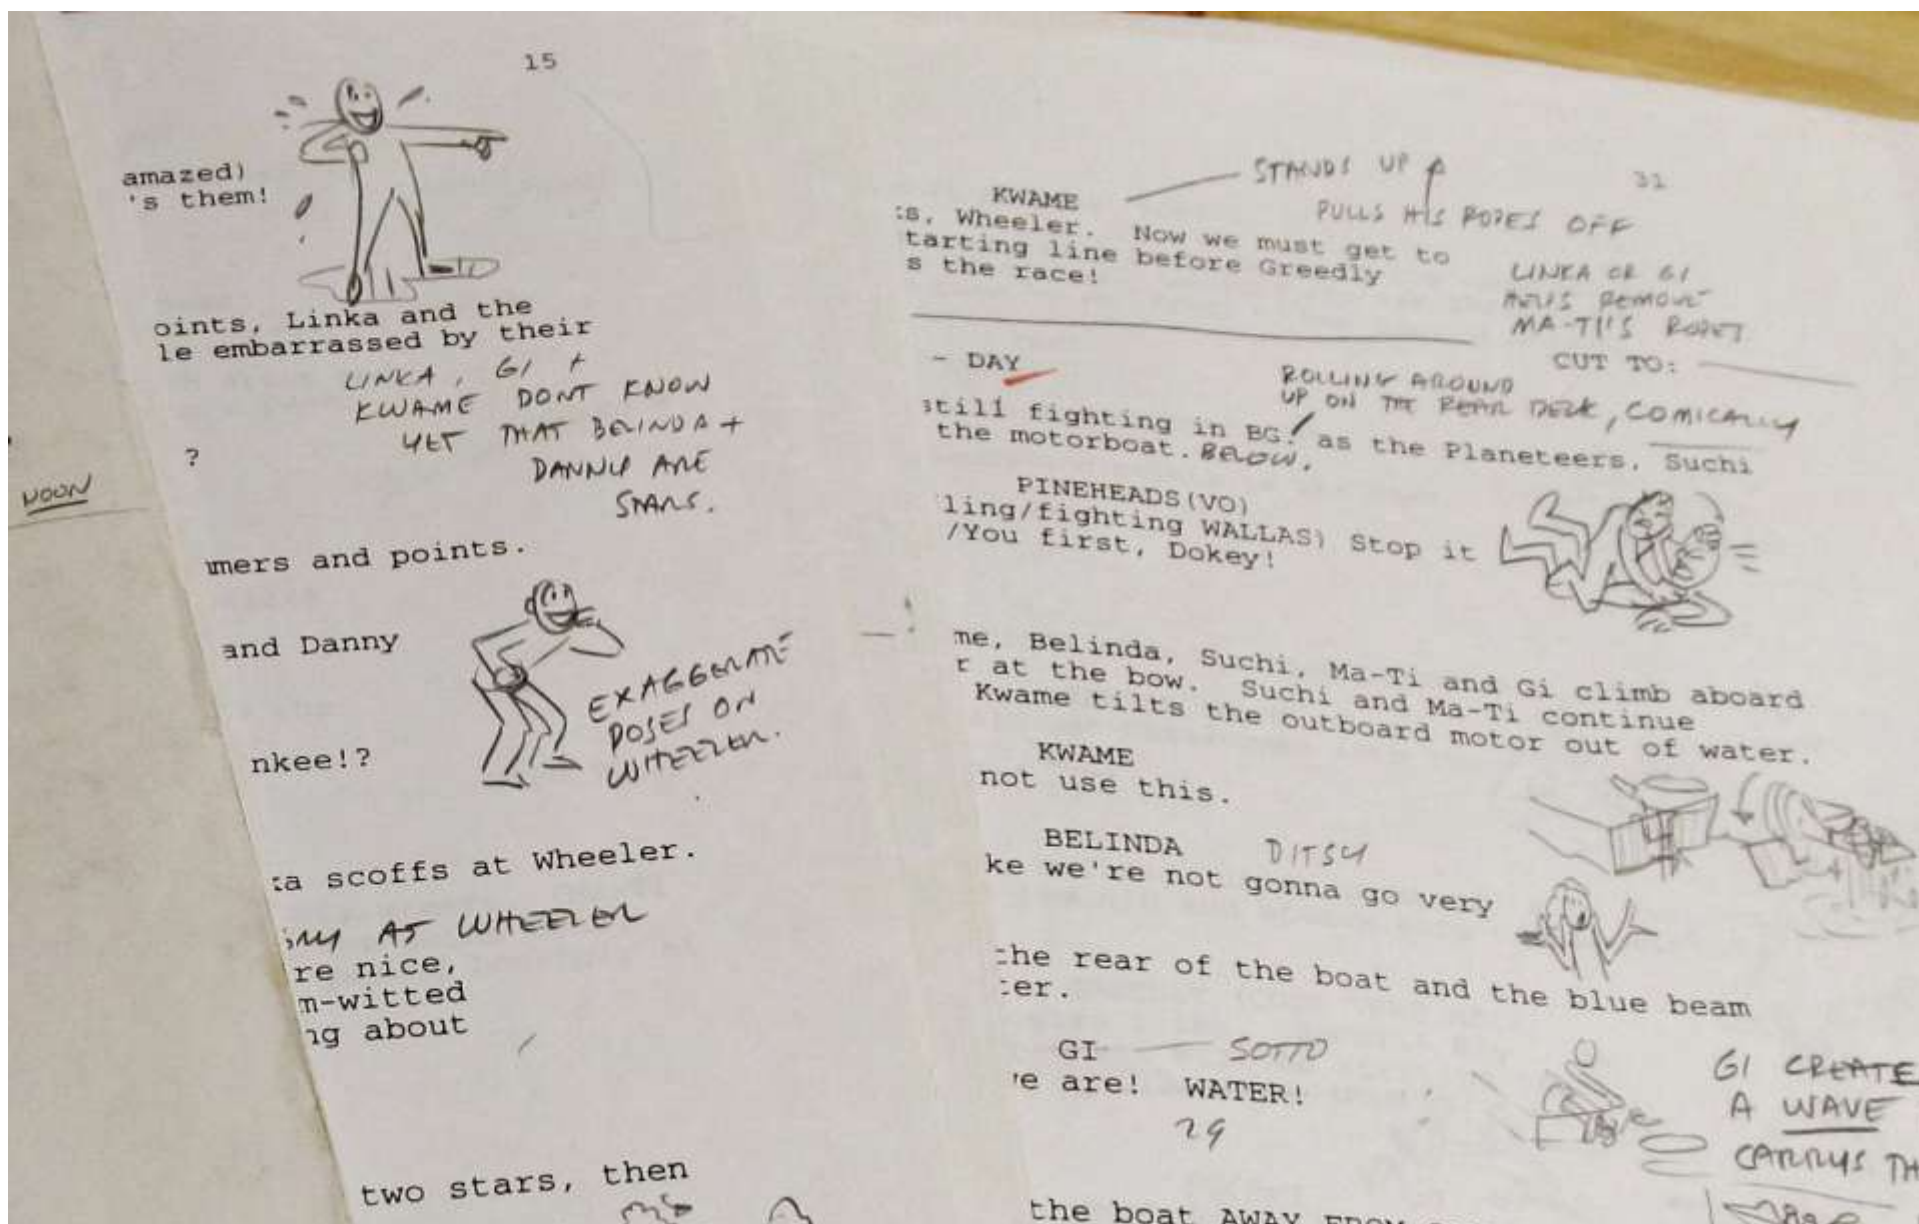 NOON
15
amazed)
's them!
oints, Linka and the
le embarrassed by their
LINKA, GI +
KWAME DONT KNOW
YET THAT BELINDA +
DANNY ARE
STARS.
?
mers and points.
and Danny
EXAGGERATE
POSES ON
WHEELER.
nkee!?
a scoffs at Wheeler.
AT WHEELER
re nice,
m-witted
ng about
two stars, then
31
STANDS UP
PULLS HIS ROPES OFF
KWAME
s, Wheeler. Now we must get to
tarting line before Greedly
s the race!
LINKA OR GI
HELPS REMOVE
MA-TI'S ROPES
CUT TO:
- DAY
ROLLING AROUND
UP ON THE REAR DECK, COMICALLY
still fighting in BG. as the Planeteers, Suchi
the motorboat. BELOW.
PINEHEADS(VO)
ling/fighting WALLAS) Stop it
/You first, Dokey!
me, Belinda, Suchi, Ma-Ti and Gi climb aboard
r at the bow. Suchi and Ma-Ti continue
Kwame tilts the outboard motor out of water.
KWAME
not use this.
BELINDA DITSY
ke we're not gonna go very
the rear of the boat and the blue beam
ter.
GI SOTTO
'e are! WATER!
29
GI CREATE
A WAVE
CARRYS TH
the boat AWAY FROM